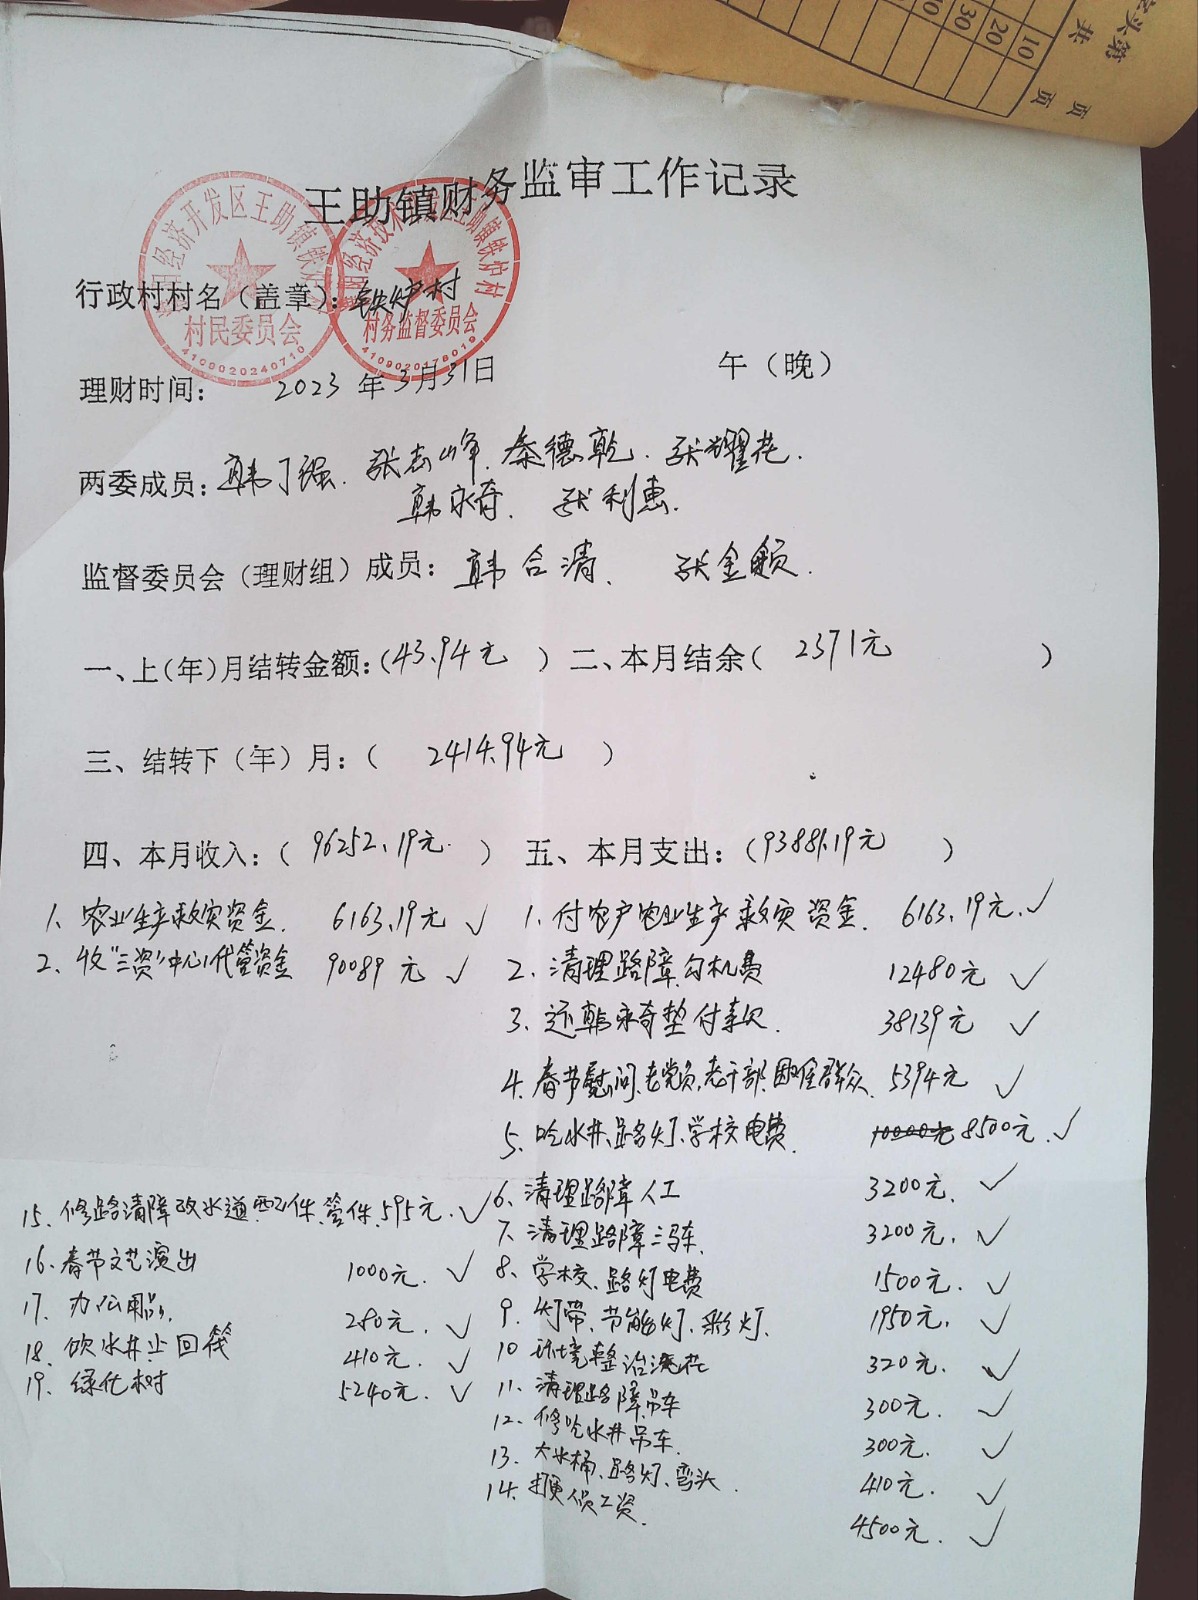 字头第
共 页
页
10
20
30
王助镇财务监审工作记录
经济开发区王助镇铁炉村
村民委员会
4109020240710
经济技术开发区王助镇铁炉村
村务监督委员会
4109020178019
行政村村名（盖章）：铁炉村
理财时间： 2023年3月31日 午（晚）
两委成员：韩丁强、张志峰、秦德乾、张耀花、
韩永奇、张利惠、
监督委员会（理财组）成员：韩合清、 张金领
一、上（年）月结转金额：（43.94元 ）二、本月结余（ 2371元 ）
三、结转下（年）月：（ 2414.94元 ）
四、本月收入：（ 96252.19元 ） 五、本月支出：（93881.19元 ）
1、农业生产救灾资金 6163.19元 ✓ 1、付农户农业生产救灾资金 6163.19元 ✓
2、收"三资"中心代管资金 90089元 ✓ 2、清理路障勾机费 12480元 ✓
3、还韩永奇垫付款 38139元 ✓
4、春节慰问老党员、老干部、困难群众 5394元 ✓
5、吃水井、路灯、学校电费 10000元 8500元 ✓
15、修路清障改水道配件、管件 595元 ✓ 6、清理路障人工 3200元 ✓
7、清理路障三马车 3200元 ✓
16、春节文艺演出 1000元 ✓ 8、学校、路灯电费 1500元 ✓
17、办公用品 280元 ✓ 9、灯带、节能灯、彩灯 1950元 ✓
18、饮水井止回筏 410元 ✓ 10、环境整治浇花 320元 ✓
19、绿化树 5240元 ✓ 11、清理路障吊车 300元 ✓
12、修吃水井吊车 300元 ✓
13、大水桶、路灯、弯头 410元 ✓
14、人员工资 4500元 ✓